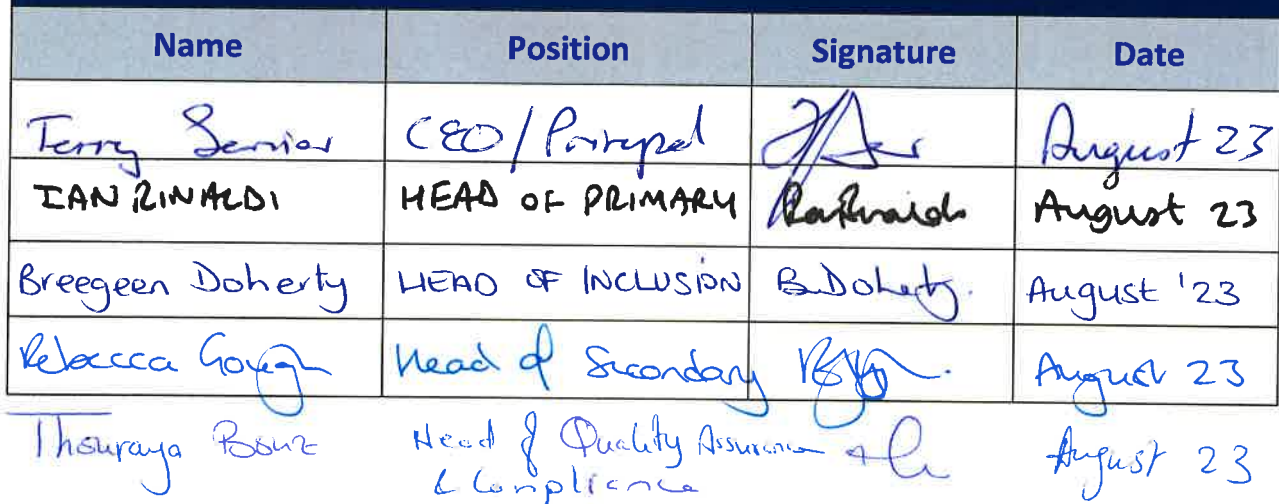 Name Position Signature Date
Terry Senior CEO/Principal August 23
IAN RINALDI HEAD OF PRIMARY IanRinaldi August 23
Breegeen Doherty HEAD OF INCLUSION B.Doherty. August '23
Rebecca Gough Head of Secondary August 23
Thouraya Head of Quality Assurance August 23
& Compliance